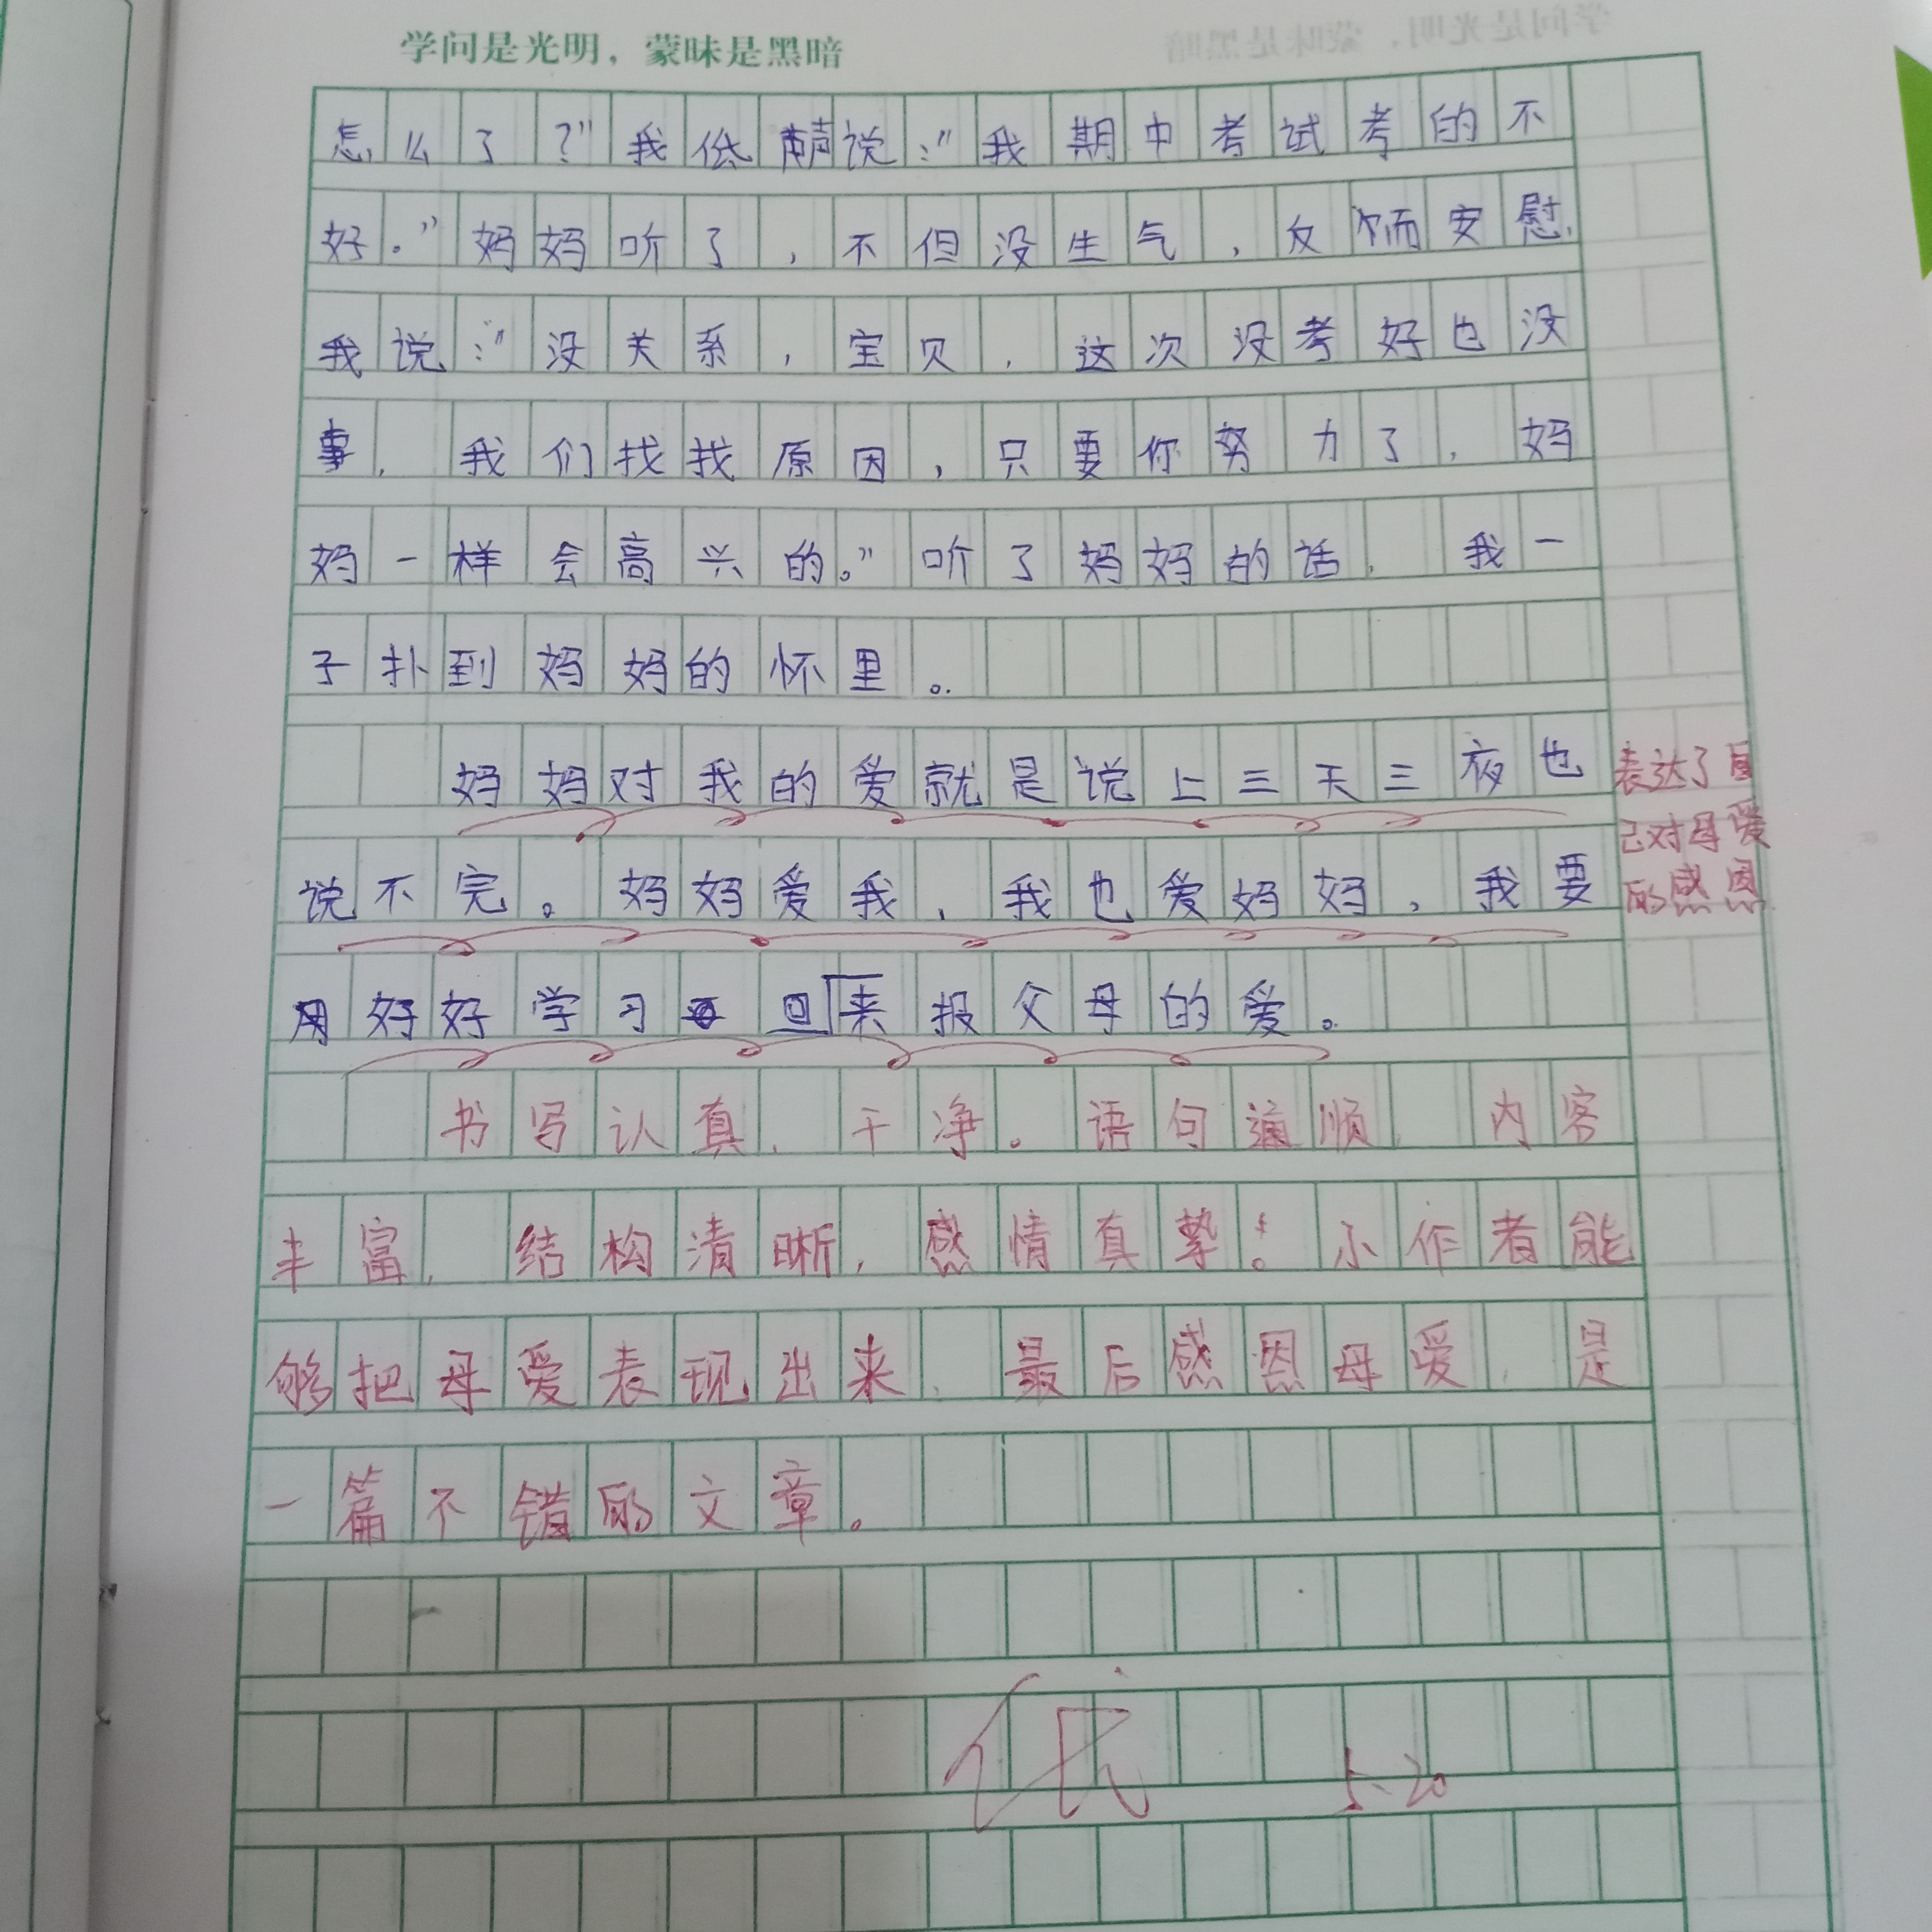 学问是光明，蒙昧是黑暗
怎么了？”我低声说：“我期中考试考的不
好。”妈妈听了，不但没生气，反而安慰
我说：“没关系，宝贝，这次没考好也没
事，我们找找原因，只要你努力了，妈
妈一样会高兴的。”听了妈妈的话，我一
子扑到妈妈的怀里。
妈妈对我的爱就是说上三天三夜也
说不完。妈妈爱我，我也爱妈妈，我要
用好好学习回来报父母的爱。
表达了自
己对母爱
的感恩
书写认真，干净。语句通顺，内容
丰富，结构清晰，感情真挚。小作者能
够把母爱表现出来，最后感恩母爱，是
一篇不错的文章。
优
5.20